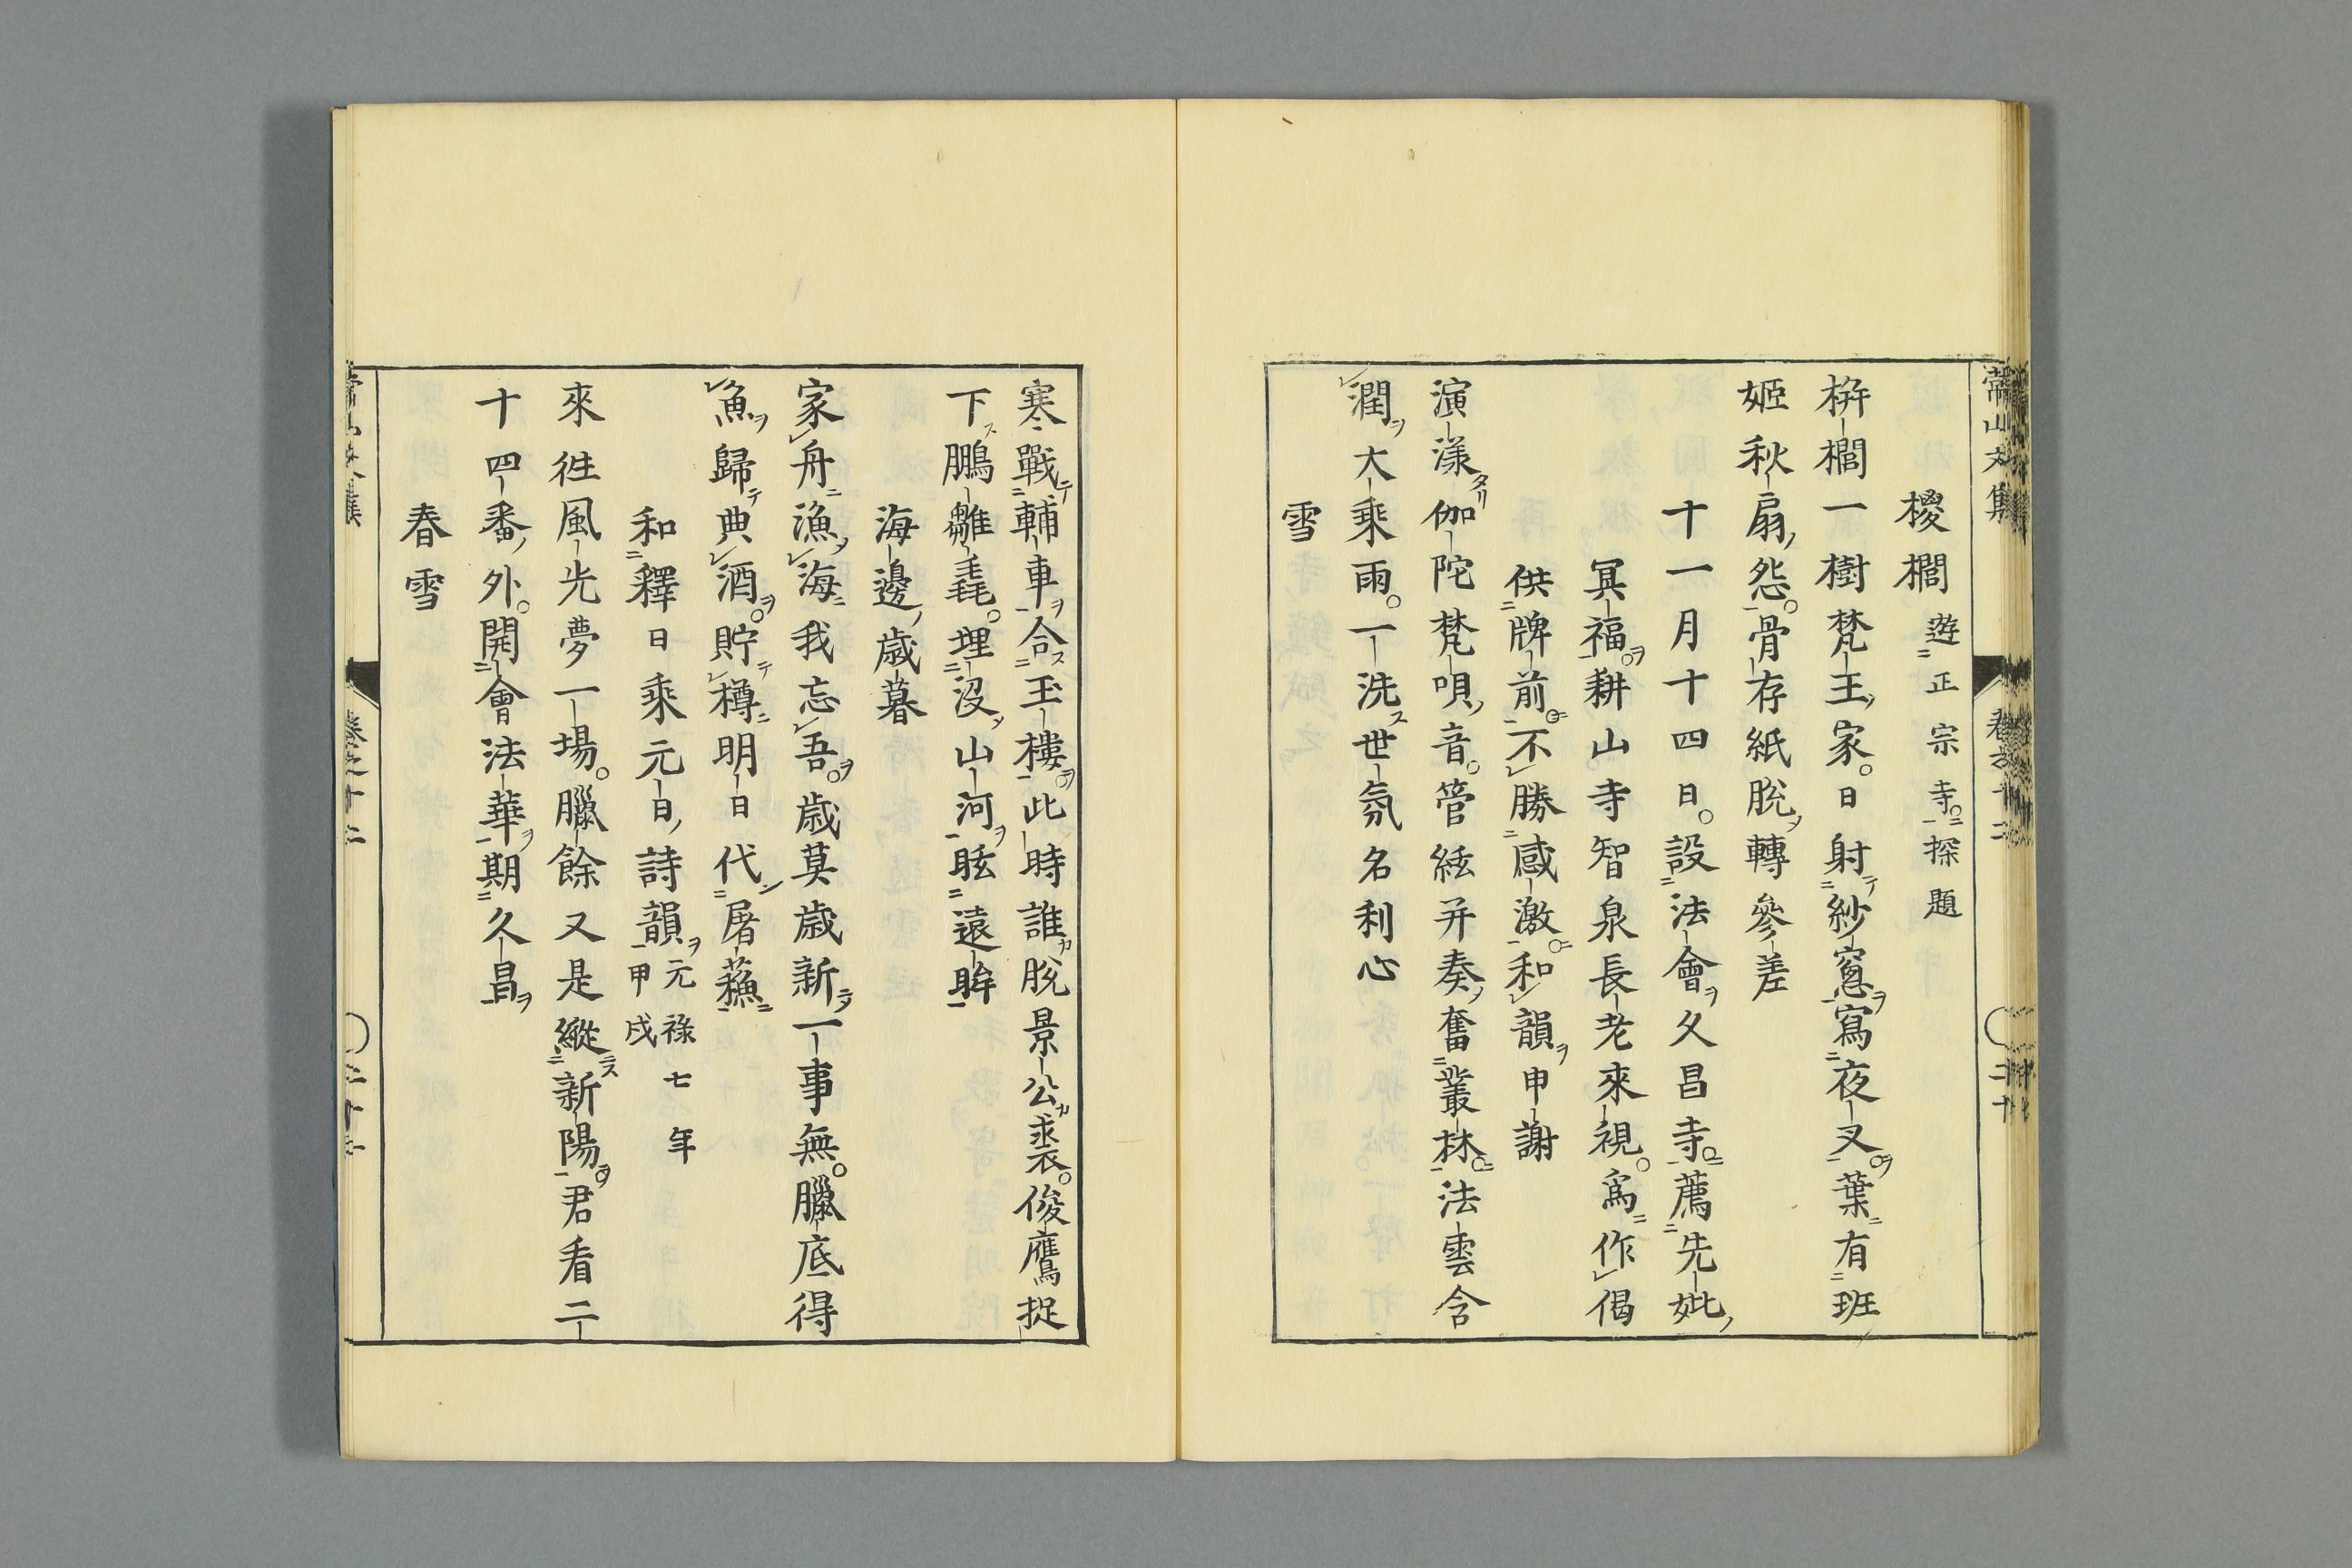 椶櫚遊正宗寺探題
栟櫚一樹梵王家日射紗窓寫夜叉葉有班
姬秋扇怨骨存紙脫轉參差
十一月十四日設法會久昌寺薦先妣
冥福耕山寺智泉長老來視爲作偈
供牌前不勝感激和韻申謝
演漾伽陀梵唄音管絃幷奏奮叢林法雲含
潤大乘雨一洗世氛名利心
雪
寒戰輔車合玉樓此時誰脫景公裘俊鷹捉
下鵬雛毳埋沒山河眩遠眸
海邊歲暮
家舟漁海我忘吾歲莫歲新一事無臘底得
魚歸典酒貯樽明日代屠蘓
和釋日乘元日詩韻元祿七年甲戌
來徃風光夢一場臘餘又是縱新陽君看二
十四番外開會法華期久昌
春雪